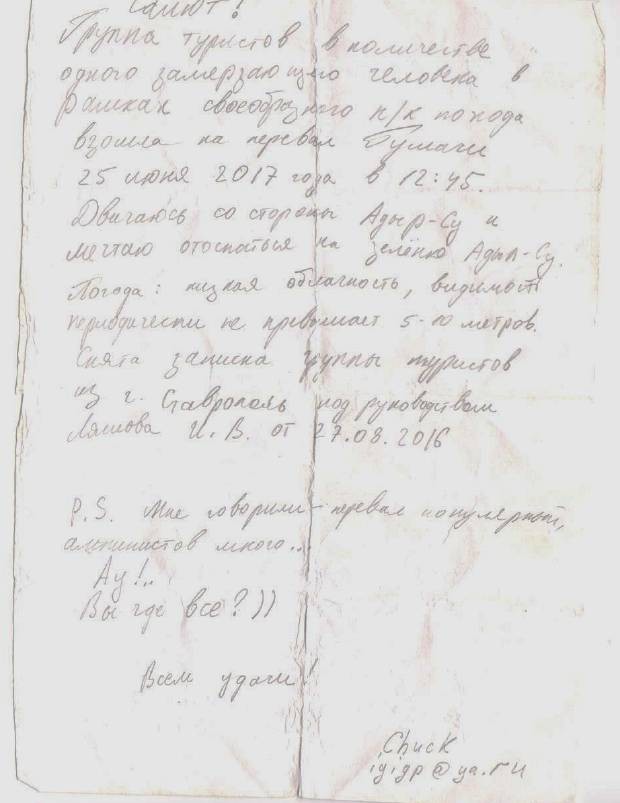 Салют!
Группа туристов в количестве
одного замерзающего человека в
рамках своеобразного п/к похода
взошла на перевал Гумачи
25 июня 2017 года в 12:45.
Двигаюсь со стороны Адыр-Су и
мечтаю отоспаться на зелёнке Адыл-Су.
Погода: низкая облачность, видимость
периодически не превышает 5-10 метров.
Снята записка группы туристов
из г. Ставрополь под руководством
И. В. от 27.08.2016
P.S. Мне говорили - перевал популярный,
альпинистов много...
Ау!..
Вы где все?))
Всем удачи!
Chuck
igigp@ya.ru